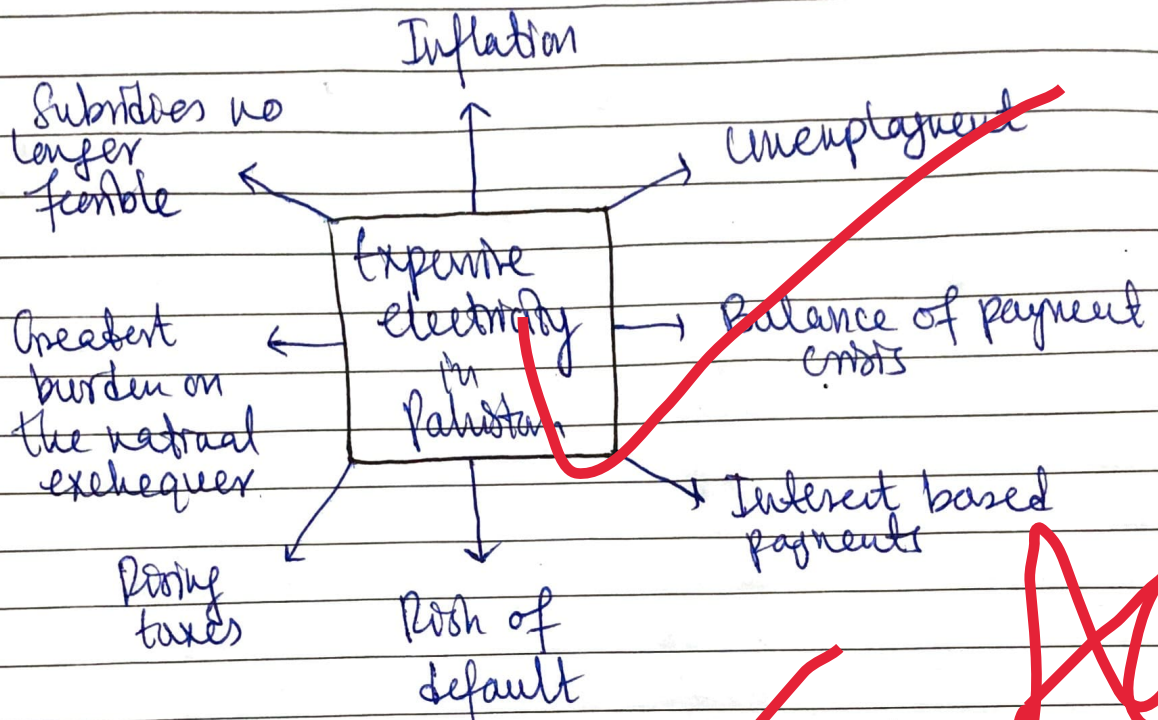 Inflation
Subsidies no
longer
feasible
Unemployment
Expensive
electricity
in
Pakistan
Greatest
burden on
the national
exchequer
Balance of payment
crisis
Interest based
payments
Rising
taxes
Risk of
default